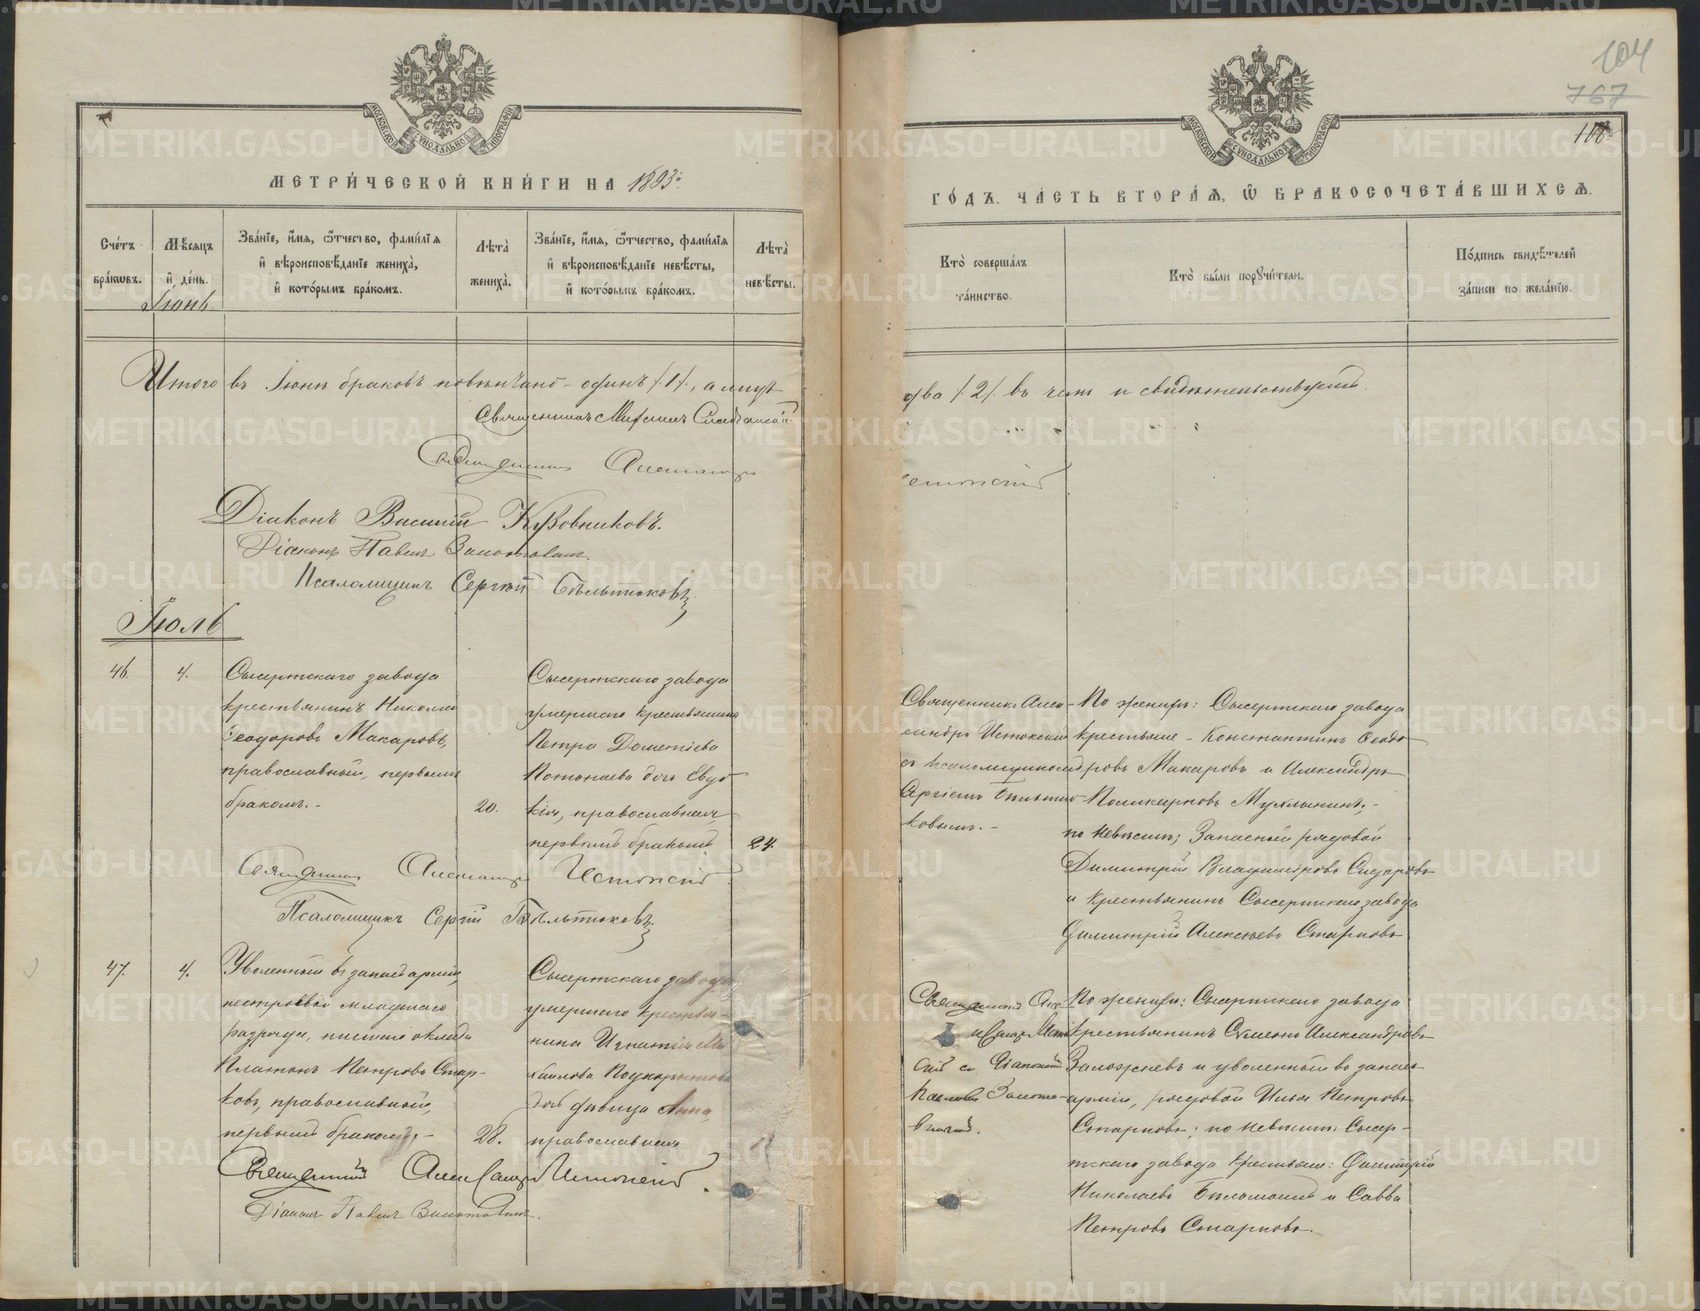 104
767
108
МОСКОВСКОЙ СУНОДАЛЬНОЙ ТИПОГРАФІИ
МОСКОВСКОЙ СУНОДАЛЬНОЙ ТИПОГРАФІИ
МЕТРИ́ЧЕСКОЙ КНИ́ГИ НА 1893й
ГО́ДЪ, ЧА́СТЬ ВТОРА́Ѧ, Ѽ БРАКОСОЧЕТА́ВШИХСѦ.
Сче́тъ бра́кѡвъ.
Мѣ́сяцъ и҆ де́нь.
Іюнь.
Зва́нїе, и҆́мѧ, ѻ҆́тчество, фами́лїѧ и҆ вѣроисповѣ́данїе жениха̀, и҆ кото́рымъ бра́комъ.
Лѣта̀ жениха̀.
Зва́нїе, и҆́мѧ, ѻ҆́тчество, фами́лїѧ и҆ вѣроисповѣ́данїе невѣ́сты, и҆ кото́рымъ бра́комъ.
Лѣта̀ невѣ́сты.
Кто̀ соверша́лъ та́инство.
Кто̀ бы́ли порꙋчи́тели.
По́дпись свидѣ́телей за́писи по жела́нїю.
Итого въ Іюнѣ браковъ повѣнчано - одинъ /1/, а
два /2/ въ чемъ и свидѣтельствуемъ.
Священникъ
Священникъ Александръ
Истокскій
Діаконъ Василій
Діаконъ Павелъ Золотавинъ.
Псаломщикъ Сергій Бѣльтюковъ
Іюль
46. 4.
Сысертскаго завода
крестьянинъ Николай
Ѳеодоровъ Макаровъ,
православный, первымъ
бракомъ.-
20.
Сысертскаго завода
умершаго крестьянина
Петра Дометіева
дочь Евдо-
кія, православная
первымъ бракомъ
24.
Священникъ Алек-
сандръ Истокскій
съ псаломщикомъ
Сергіемъ Бѣльтю-
ковымъ.-
По женихѣ: Сысертскаго завода
крестьяне - Константинъ Ѳеодо-
ровъ Макаровъ и Александръ
Поликарповъ Мухлынинъ;-
по невѣстѣ; Запасный рядовой
Димитрій Владиміровъ Сидоровъ
и крестьянинъ Сысертскаго завода
Димитрій Алексѣевъ Старковъ
Священникъ Александръ Истокскій
Псаломщикъ Сергій Бѣльтюковъ
47. 4.
Уволенный въ запасъ арміи,
младшаго
разряда, писшаго оклада
Платонъ Петровъ Стар-
ковъ, православный,
первымъ бракомъ.-
28.
Сысертскаго завода
умершаго крестья-
нина Игнатія Ми-
хаилова
дочь дѣвица Анна,
православная
Священникъ Але-
ксандръ Исток-
скій съ Діакономъ
Павломъ Золота-
винымъ.
По женихѣ: Сысертскаго завода
крестьянинъ Симеонъ Александровъ
и уволенный въ запасъ
арміи, рядовой Илья Петровъ
Старковъ; по невѣстѣ: Сысер-
тскаго завода крестьяне: Димитрій
Николаевъ и Савва
Петровъ Старковъ.
Священникъ Александръ Истокскій.
Діаконъ Павелъ Золотавинъ.
METRIKI.GASO-URAL.RU